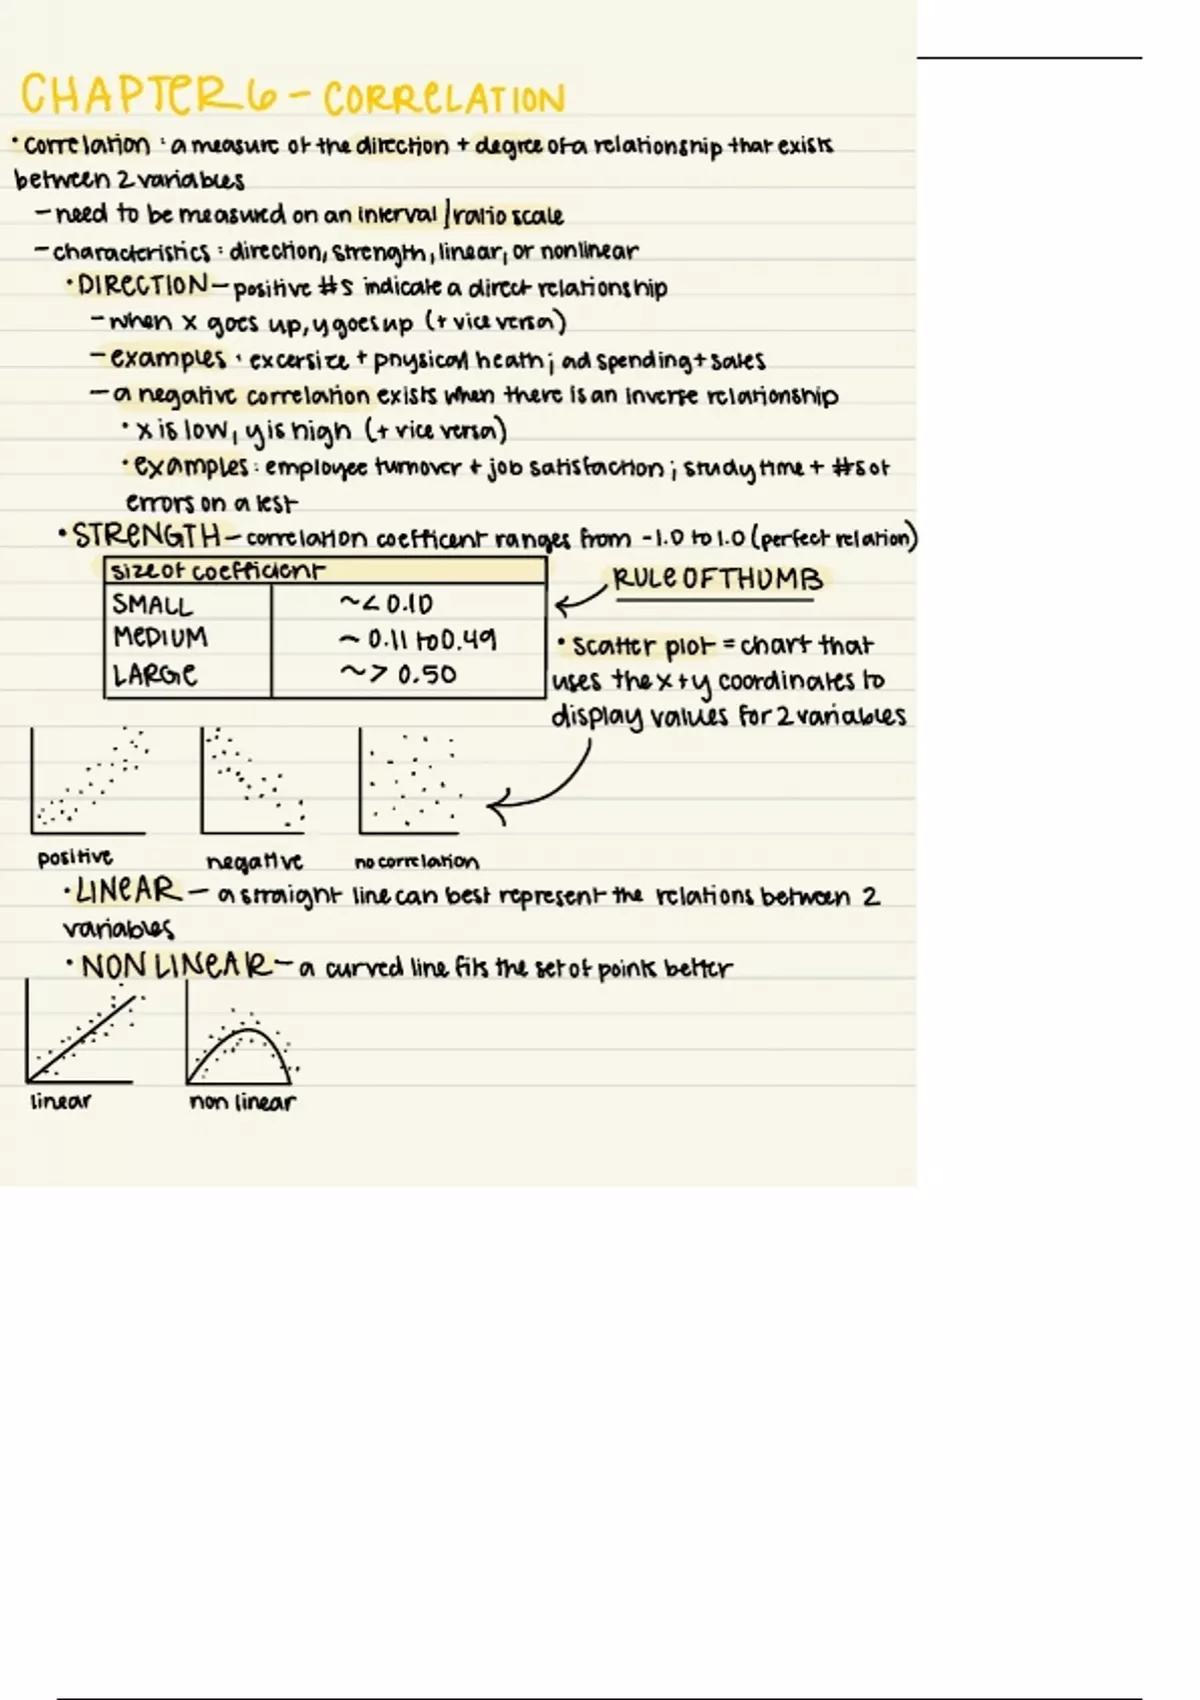 CHAPTER 6 - CORRELATION
• correlation : a measure of the direction + degree of a relationship that exists
between 2 variables
- need to be measured on an interval / ratio scale
- characteristics : direction, strength, linear, or nonlinear
• DIRECTION - positive #s indicate a direct relationship
- when x goes up, y goes up (+ vice versa)
- examples : excersize + physical heath ; ad spending + sales
- a negative correlation exists when there is an inverse relationship
• x is low, y is high (+ vice versa)
• examples : employee turnover + job satisfaction ; study time + #s of
errors on a test
• STRENGTH - correlation coefficent ranges from -1.0 to 1.0 (perfect relation)
size of coefficient
SMALL ~< 0.10
MEDIUM ~ 0.11 to 0.49
LARGE ~> 0.50
RULE OF THUMB
• scatter plot = chart that
uses the x + y coordinates to
display values for 2 variables
positive negative no correlation
• LINEAR - a straight line can best represent the relations between 2
variables
• NON LINEAR - a curved line fits the set of points better
linear non linear